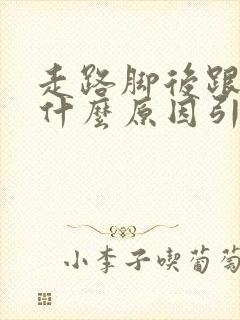 走路脚後跟
什麼原因引
小李子喫葡萄